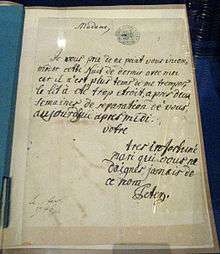 Madame,
Je vous prie de ne point vous incom,
cette Nuit de dormir avec moi
car il n'est plus tems de me tromper
le lit a été trop etroit, apres deux
semaines de separation de vous
aujourd'hui apres midi.
votre
tres infortuné
mari qui vous ne
daignez jamais de
ce nom
Peter